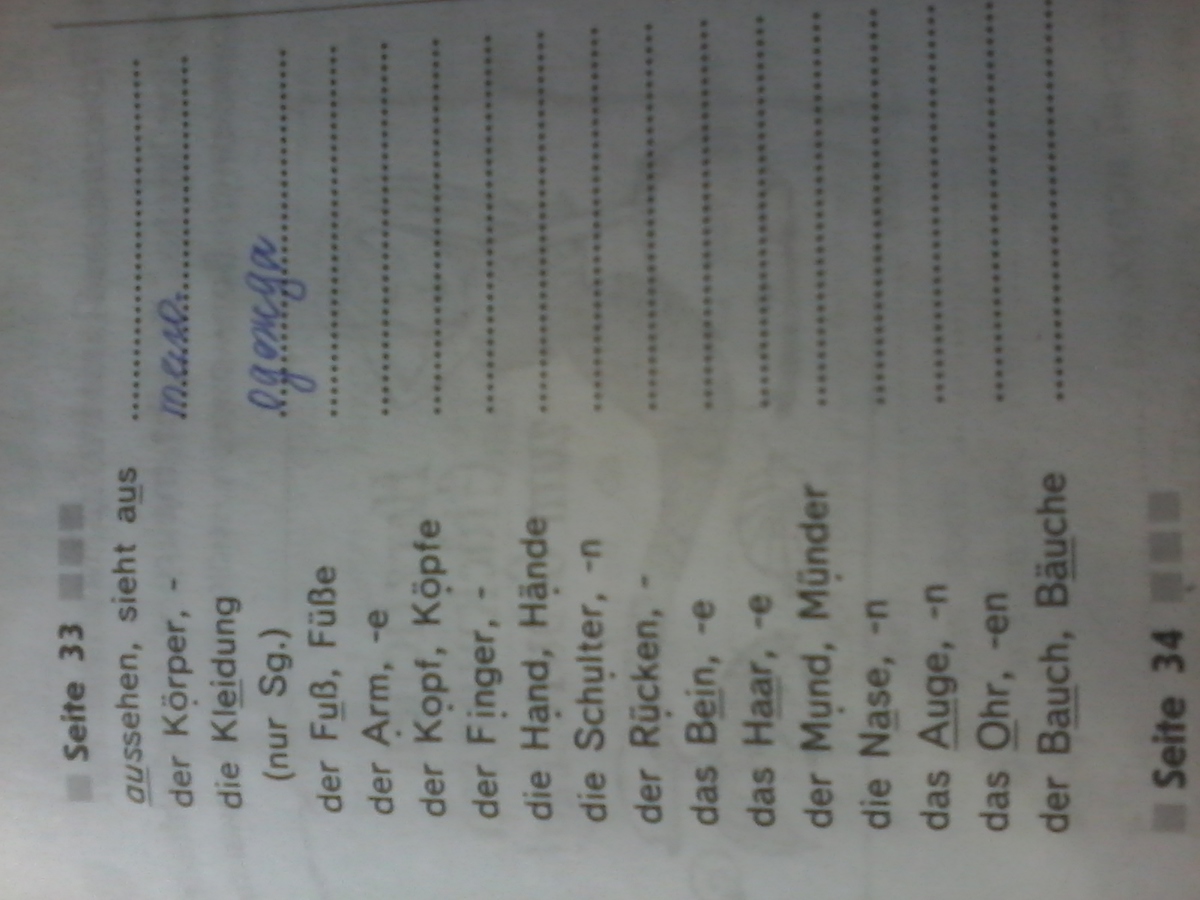 Seite 33
aussehen, sieht aus ........................
der Körper, - тело ........................
die Kleidung
(nur Sg.) одежда ........................
der Fuß, Füße ........................
der Arm, -e ........................
der Kopf, Köpfe ........................
der Finger, - ........................
die Hand, Hände ........................
die Schulter, -n ........................
der Rücken, - ........................
das Bein, -e ........................
das Haar, -e ........................
der Mund, Münder ........................
die Nase, -n ........................
das Auge, -n ........................
das Ohr, -en ........................
der Bauch, Bäuche ........................
Seite 34